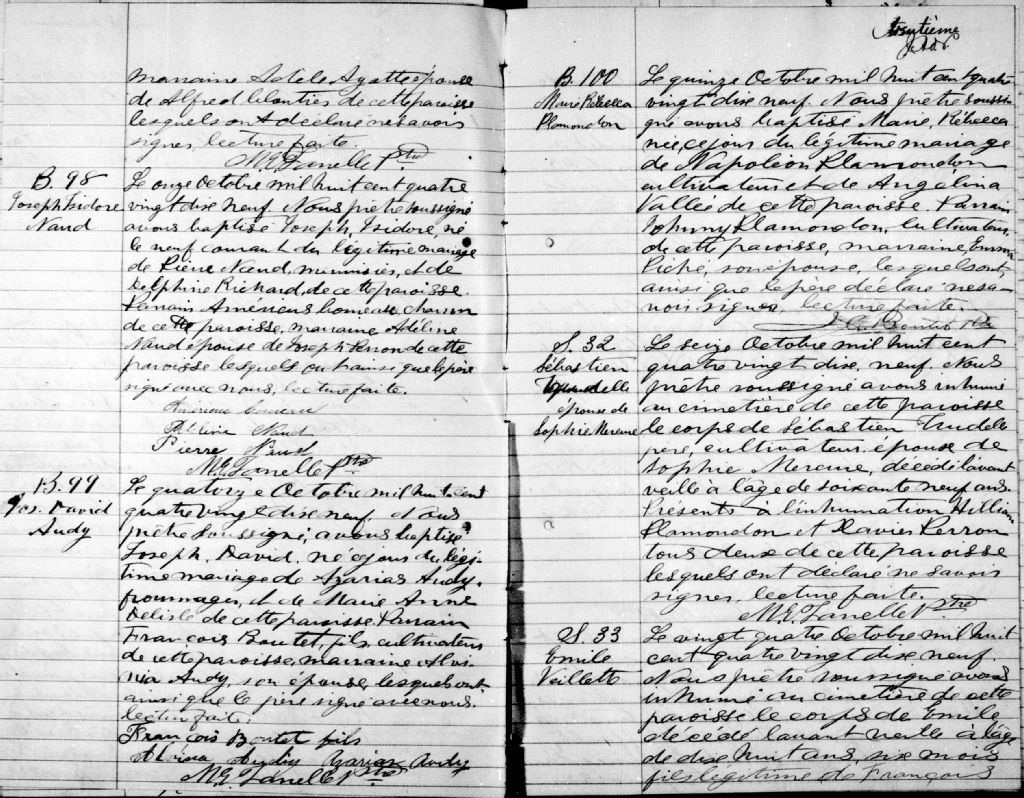 marraine Adèle Ayotte épouse
de Alfred Cloutier de cette paroisse
lesquels ont déclaré ne savoir
signer, lecture faite.
M.E. Ptre
B. 98
Joseph Isidore
Naud
Le onze Octobre mil huit cent quatre
vingt dix neuf. Nous prêtre soussigné
avons baptisé Joseph, Isidore, né
le neuf courant du légitime mariage
de Pierre Naud, menuisier, et de
Delphine Richard, de cette paroisse.
Parrain Américus charron
de cette paroisse, marraine Adéline
Naud épouse de Joseph Perron de cette
paroisse lesquels ont ainsi que le père
signé avec nous, lecture faite.
Naud
Pierre
M.E. Ptre
B. 99
Jos. David
Audy
Le quatorze Octobre mil huit cent
quatre vingt dix neuf. Nous
prêtre soussigné, avons baptisé
Joseph, David, né ce jour du légi-
time mariage de Azarias Audy,
frommager, et de Marie Anne
Delisle de cette paroisse Parrain
François Boutet, fils, cultivateur
de cette paroisse, marraine Alvi-
na Audy, son épouse, lesquels ont
ainsi que le père signé avec nous.
lecture faite.
François Boutet fils
Alvina Audy Azarias Audy
M.E. Ptre
trentième
B. 100
Marie Rébecca
Plamondon
Le quinze Octobre mil huit cent quatre
vingt dix neuf. Nous prêtre soussi-
gné avons baptisé Marie, Rébecca
née ce jour du légitime mariage
de Napoléon Plamondon
cultivateur et de Angélina
Vallée de cette paroisse. Parrain
Johnny Plamondon, cultivateur,
de cette paroisse, marraine, Emma
Piché, son épouse, lesquels ont,
ainsi que le père déclaré ne sa-
voir signer, lecture faite.
Ptre
S. 32
Sébastien
Trudelle
épouse de
Sophie Mercure
Le seize Octobre mil huit cent
quatre vingt dix, neuf. Nous
prêtre soussigné avons inhumé
au cimetière de cette paroisse
le corps de Sébastien Trudelle
père, cultivateur. épouse de
Sophie Mercure, décédé l'avant
veille à l'âge de soixante neuf ans.
Présents à l'inhumation William
Plamondon et Xavier Perron
tous deux de cette paroisse
lesquels ont déclaré ne savoir
signer, lecture faite.
M.E. Ptre
S. 33
Emile
Veillette
Le vingt quatre Octobre mil huit
cent quatre vingt dix neuf.
Nous prêtre soussigné avons
inhumé au cimetière de cette
paroisse le corps de Emile
décédé l'avant veille à l'âge
de dix huit ans, six mois
fils légitime de François